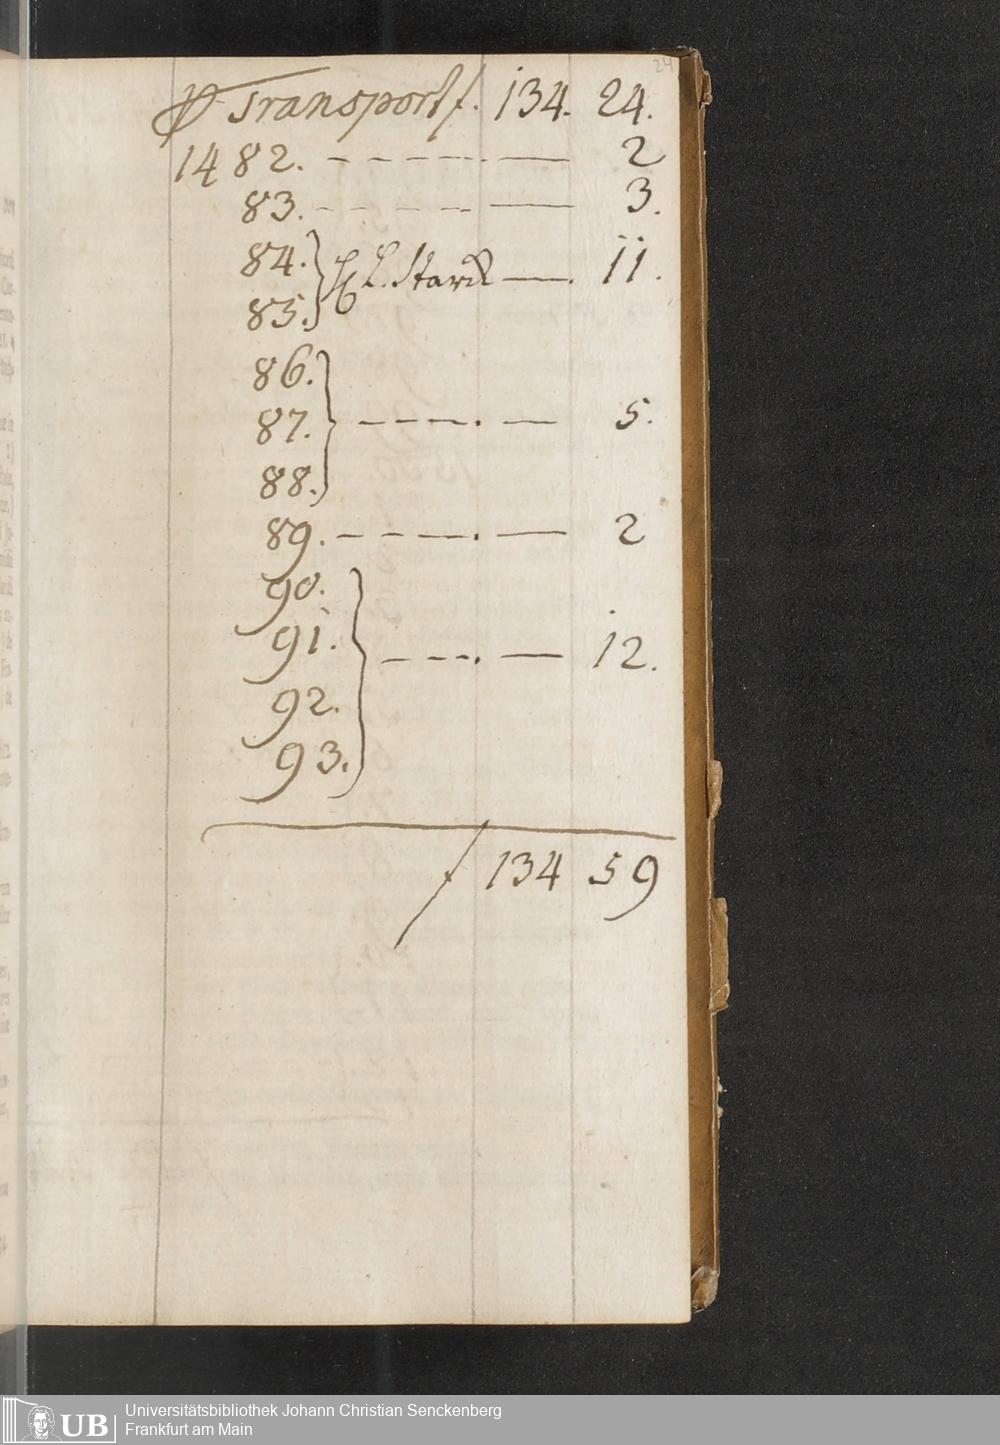 24
Transport f. 134. 24.
1482. - - - - - . — 2
83. - - - - - — 3.
84. } H. L. Starck — . 11.
85.
86.
87. } - - - - . — 5.
88.
89. - - - - . — 2
90.
91. } - - - . — 12.
92.
93.
f 134 59
UB
Universitätsbibliothek Johann Christian Senckenberg
Frankfurt am Main